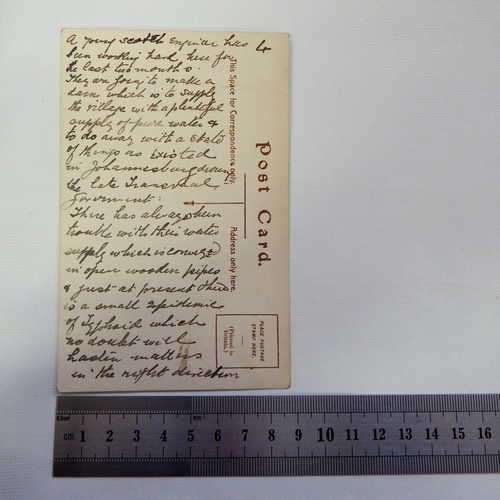 A young scotch Engineer has
4
been working hard here for
the last two months.
They are going to make a
dam which is to supply
the village with a plentiful
supply of pure water &
to do away with a state
of things as existed
in Johannesburg during
the late Transvaal
Government:
There has always been
trouble with their water
supply which is conveyed
in open wooden pipes
& just at present there
is a small epidemic
of Typhoid which
no doubt will
hasten matters
in the right direction
This Space for Correspondence only.
Post Card.
Address only here.
PLACE POSTAGE
STAMP HERE.
(Printed in
Britain.)
cm 1 2 3 4 5 6 7 8 9 10 11 12 13 14 15 16